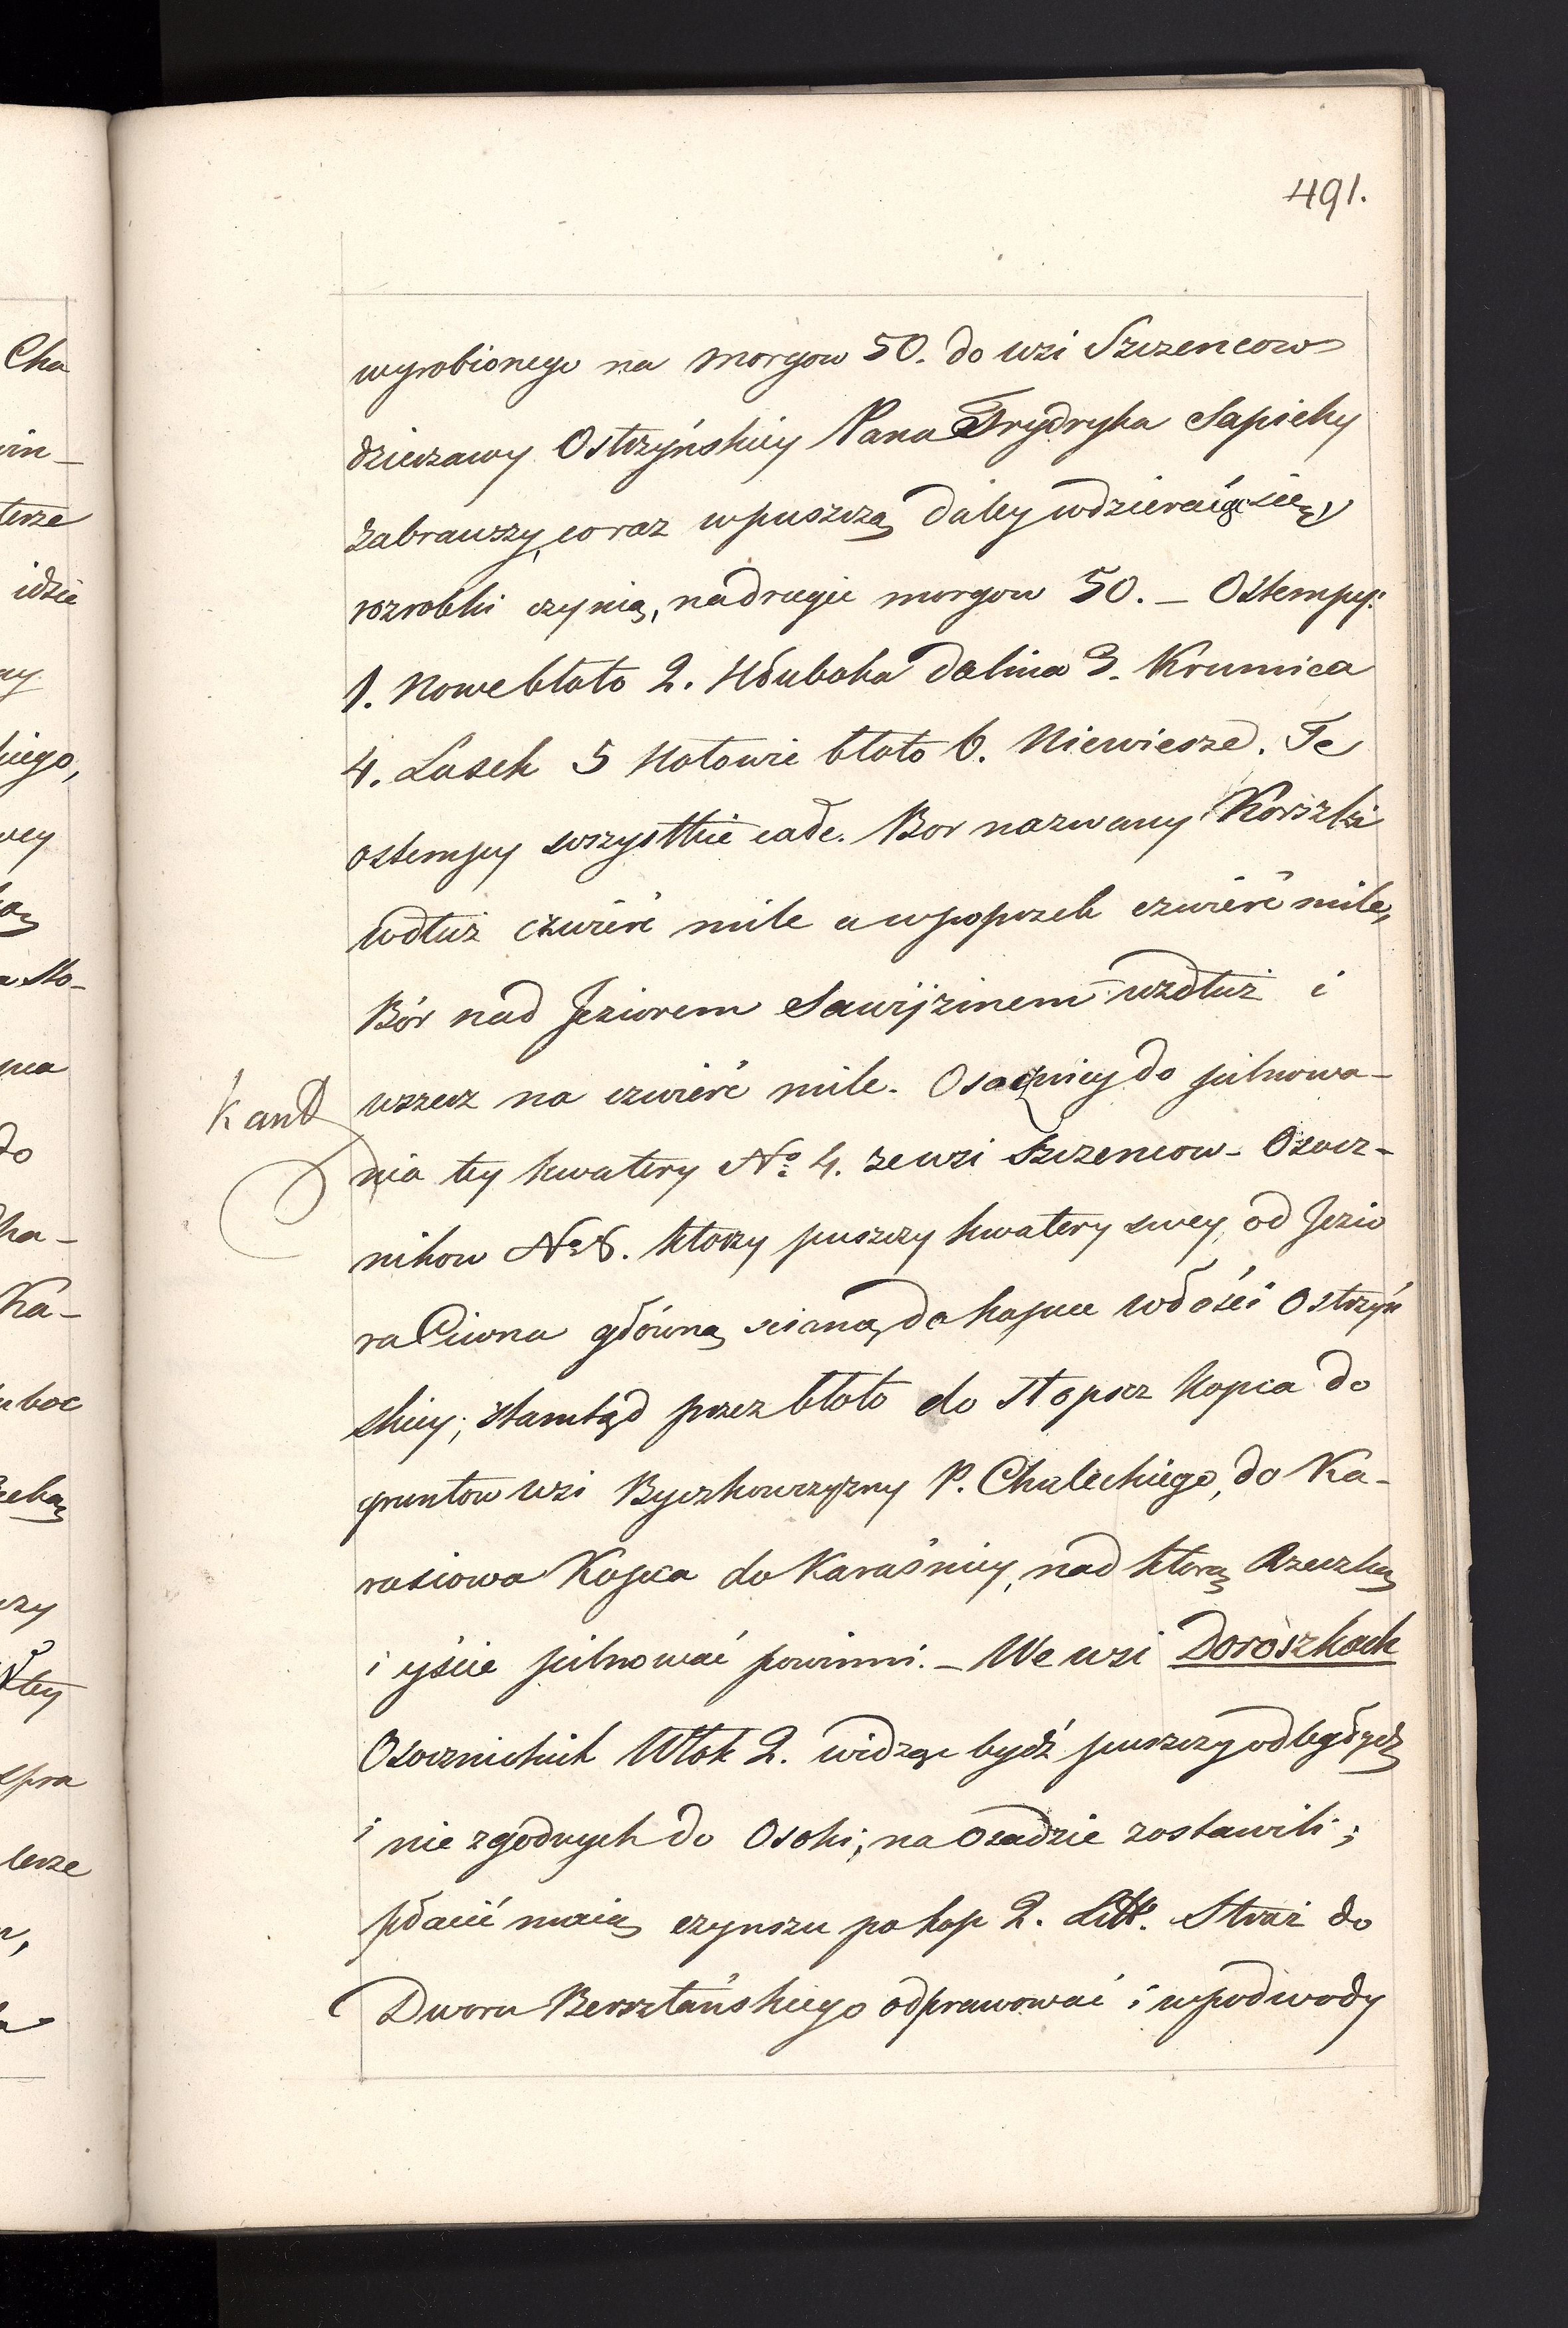 491.
wyrobionego na morgow 50. do wsi Szczencow
dzierzawy Ostrzyńskiey Pana Frydryka Sapiehy
zabrawszy, coraz wpuszczą daley wdzieraiąc się y
rozrobki czynią, na drugie morgow 50. – Ostempy:
1. Nowe błoto 2. Hłuboka dalina 3. Krumica
4. Lasek 5 Hotowie błoto 6. Niewiesze. Te
ostempy wszystkie całe. Bor nazwany Korszki
wdłuż czwierć mile a wpoprzek czwierć mile,
Bór nad Jeziorem Sawijzinem wzdłuż i
wszerz na czwierć mile. Osocznicy do pilnowa-
nia tey kwatery № 4. ze wsi Szczencow – Osocz-
Kant
nikow № 8. ktorzy puszczy kwatery swey, od Jezio
ra Ciwna główną scianą do kopca włości Ostrzyń
skiey; ztamtąd przez błoto do Stoporz Kopca do
gruntow wsi Byczkowczyzny P. Chaleckiego, do Ka-
rasiowa Kopca do Karaśnicy, nad ktorą Rzeczką
i yście pilnować powinni. – We wsi Doroszkach
Osocznickich Włok 2. widząc bydź puszczy odległych
i nie zgodnych do Osoki; na osadzie zostawili;
płacić maią czynszu po kop 2. Litt. Straż do
Dworu Bersztańskiego odprawować i w podwody
Cha
terze
idzie
kiego,
do
Ka-